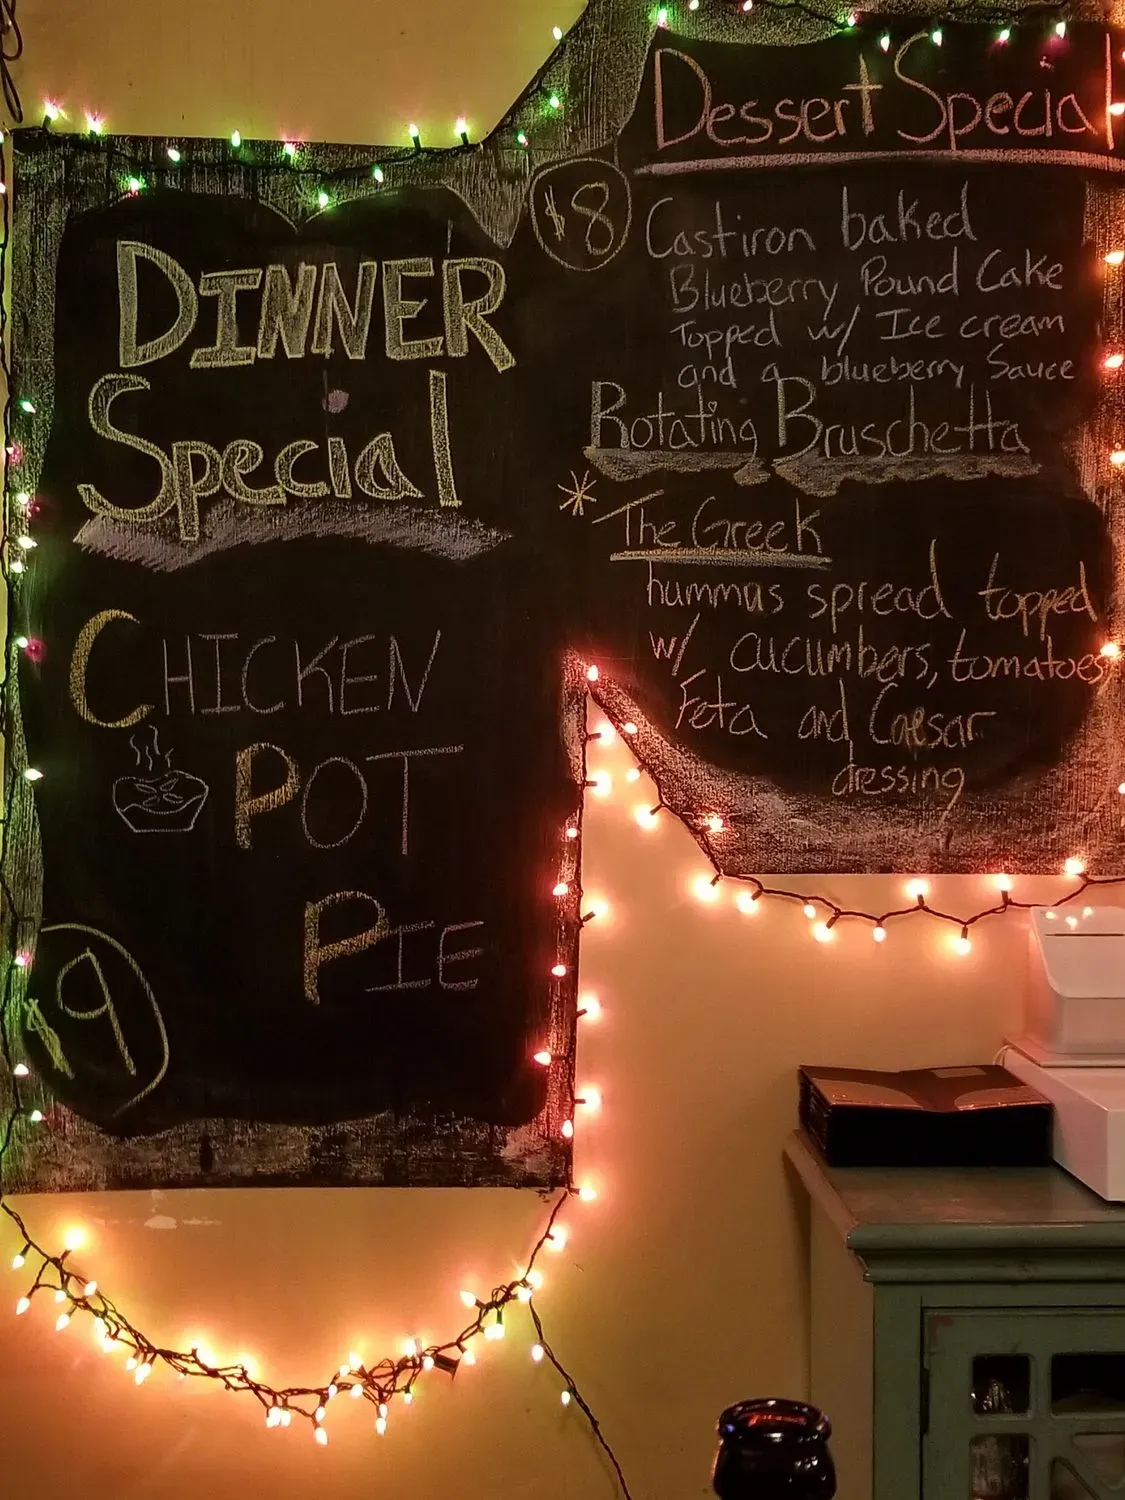 DINNER
Special
CHICKEN
POT
PIE
$9
Dessert Special
$8
Castiron baked
Blueberry Pound Cake
Topped w/ Ice cream
and a blueberry Sauce
Rotating Bruschetta
* The Greek
hummus spread topped
w/ cucumbers, tomatoes
Feta and Caesar
dressing